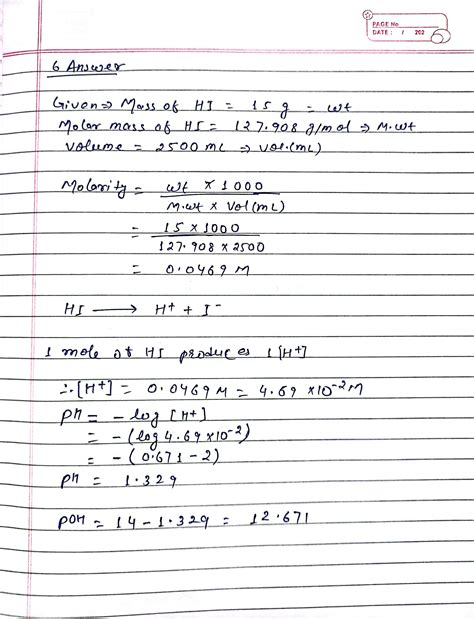 PAGE No
DATE : / 202
6 Answer
Given ⇒ Mass of HI = 15 g = wt
Molar mass of HI = 127.908 g/mol ⇒ M.wt
Volume = 2500 mL ⇒ Vol.(mL)
Molarity = wt × 1000
M.wt × Vol (mL)
= 15 × 1000
127.908 × 2500
= 0.0469 M
HI ⟶ H⁺ + I⁻
1 mole of HI produces 1 [H⁺]
∴ [H⁺] = 0.0469 M = 4.69 ×10⁻² M
PH = - log [H⁺]
= - (log 4.69 ×10⁻²)
= - (0.671 - 2)
PH = 1.329
POH = 14 - 1.329 = 12.671